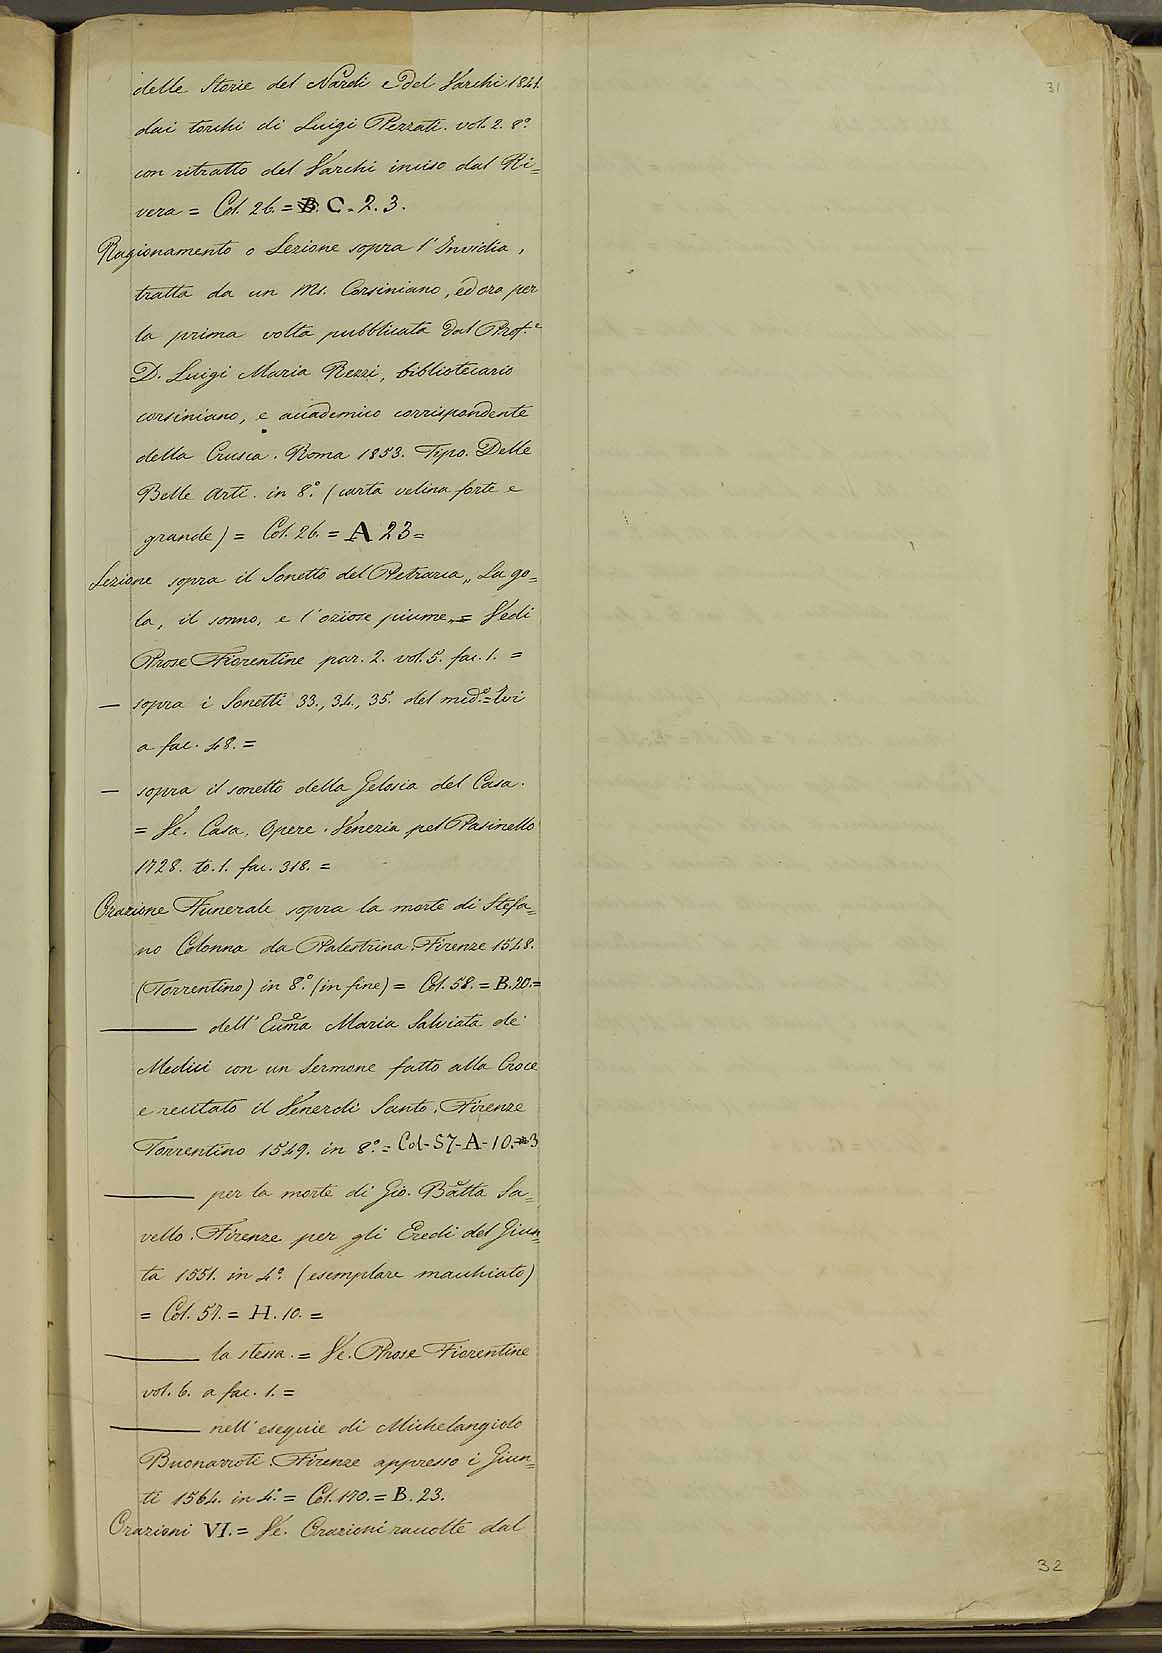 31
delle Storie del Nardi e del Varchi 1841.
dai torchi di Luigi Pezzati. vol. 2. 8.°
con ritratto del Varchi inciso dal Ri=
vera = Col. 26. = C. 2. 3.
Ragionamento o Lezione sopra l'Invidia,
tratta da un Ms. Corsiniano, ed ora per
la prima volta pubblicata dal Prof.e
D. Luigi Maria Rezzi, bibliotecario
corsiniano, e accademico corrispondente
della Crusca. Roma 1853. Tipo. Delle
Belle Arti. in 8.° (carta velina forte e
grande) = Col. 26. = A 23 =
Lezione sopra il Sonetto del Petrarca „ La go=
la, il sonno, e l'oziose piume „ = Vedi
Prose Fiorentine par. 2. vol. 5. fac. 1. =
— sopra i Sonetti 33., 34., 35. del med.° = Ivi
a fac. 48. =
— sopra il sonetto della Gelosia del Casa.
= Ve. Casa, Opere. Venezia pel Pasinello
1728. to. 1. fac. 318. =
Orazione Funerale sopra la morte di Stefa=
no Colonna da Palestrina. Firenze 1548.
(Torrentino) in 8.° (in fine) = Col. 58. = B. 20. =
——— dell' Maria Salviata de'
Medici con un Sermone fatto alla Croce
e recitato il Venerdi Santo. Firenze
Torrentino 1549. in 8.° = Col- 57- A- 10. 3
——— per la morte di Gio. Batta Sa=
vello. Firenze per gli Eredi del Giun=
ta 1551. in 4.° (esemplare macchiato)
= Col. 57. = H. 10. =
——— la stessa. = Ve. Prose Fiorentine
vol. 6. a fac. 1. =
——— nell'esequie di Michelangiolo
Buonarroti. Firenze appresso i Giun=
ti 1564. in 4.° = Col. 170. = B. 23.
Orazioni VI. = Ve. Orazioni raccolte dal
32